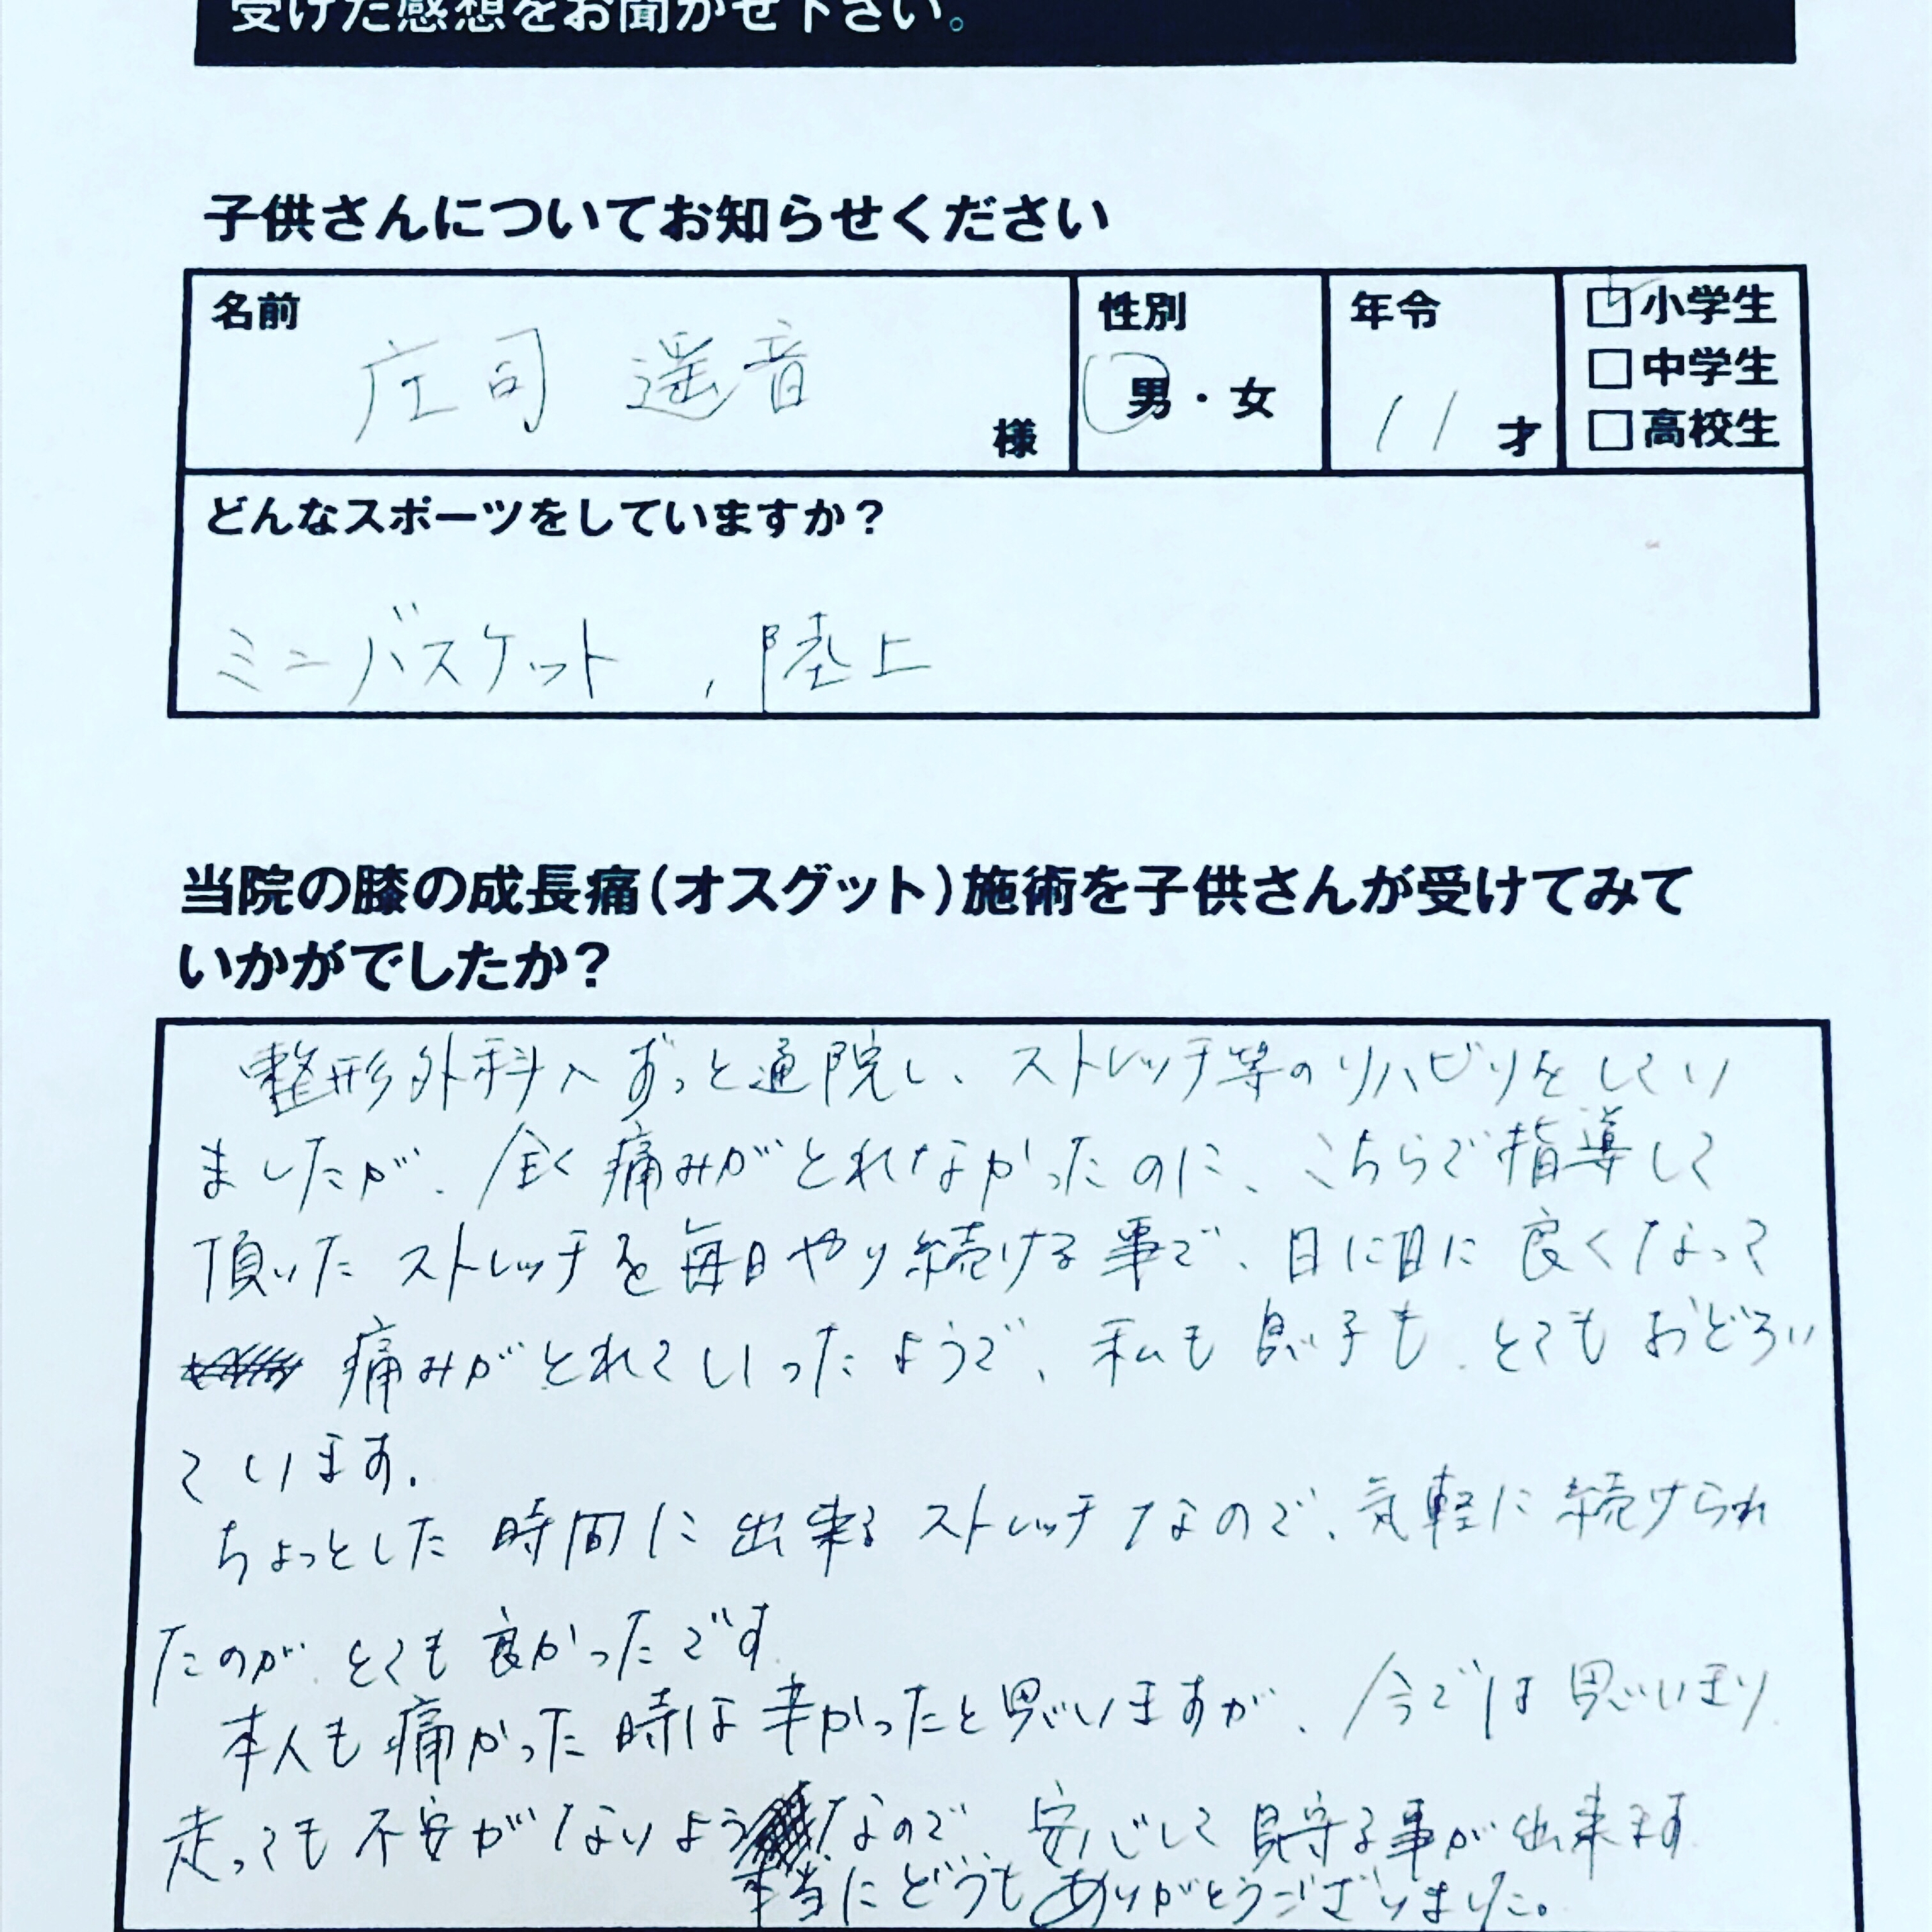 受けた感想をお聞かせ下さい。
子供さんについてお知らせください
名前
庄司 遥音
様
性別
男・女
年令
11才
小学生
中学生
高校生
どんなスポーツをしていますか?
ミニバスケット,陸上
当院の膝の成長痛(オスグット)施術を子供さんが受けてみて
いかがでしたか?
整形外科へずっと通院し、ストレッチ等のリハビリをしてい
ましたが、全く痛みがとれなかったのに、こちらで指導して
頂いたストレッチを毎日やり続ける事で、日に日に良くなって
痛みがとれていったようで、私も息子も、とてもおどろい
ています。
ちょっとした時間に出来るストレッチなので、気軽に続けられ
たのが、とても良かったです。
本人も痛かった時は辛かったと思いますが、今では思いきり
走っても不安がないようなので安心して見守る事が出来ます
本当にどうもありがとうございました。